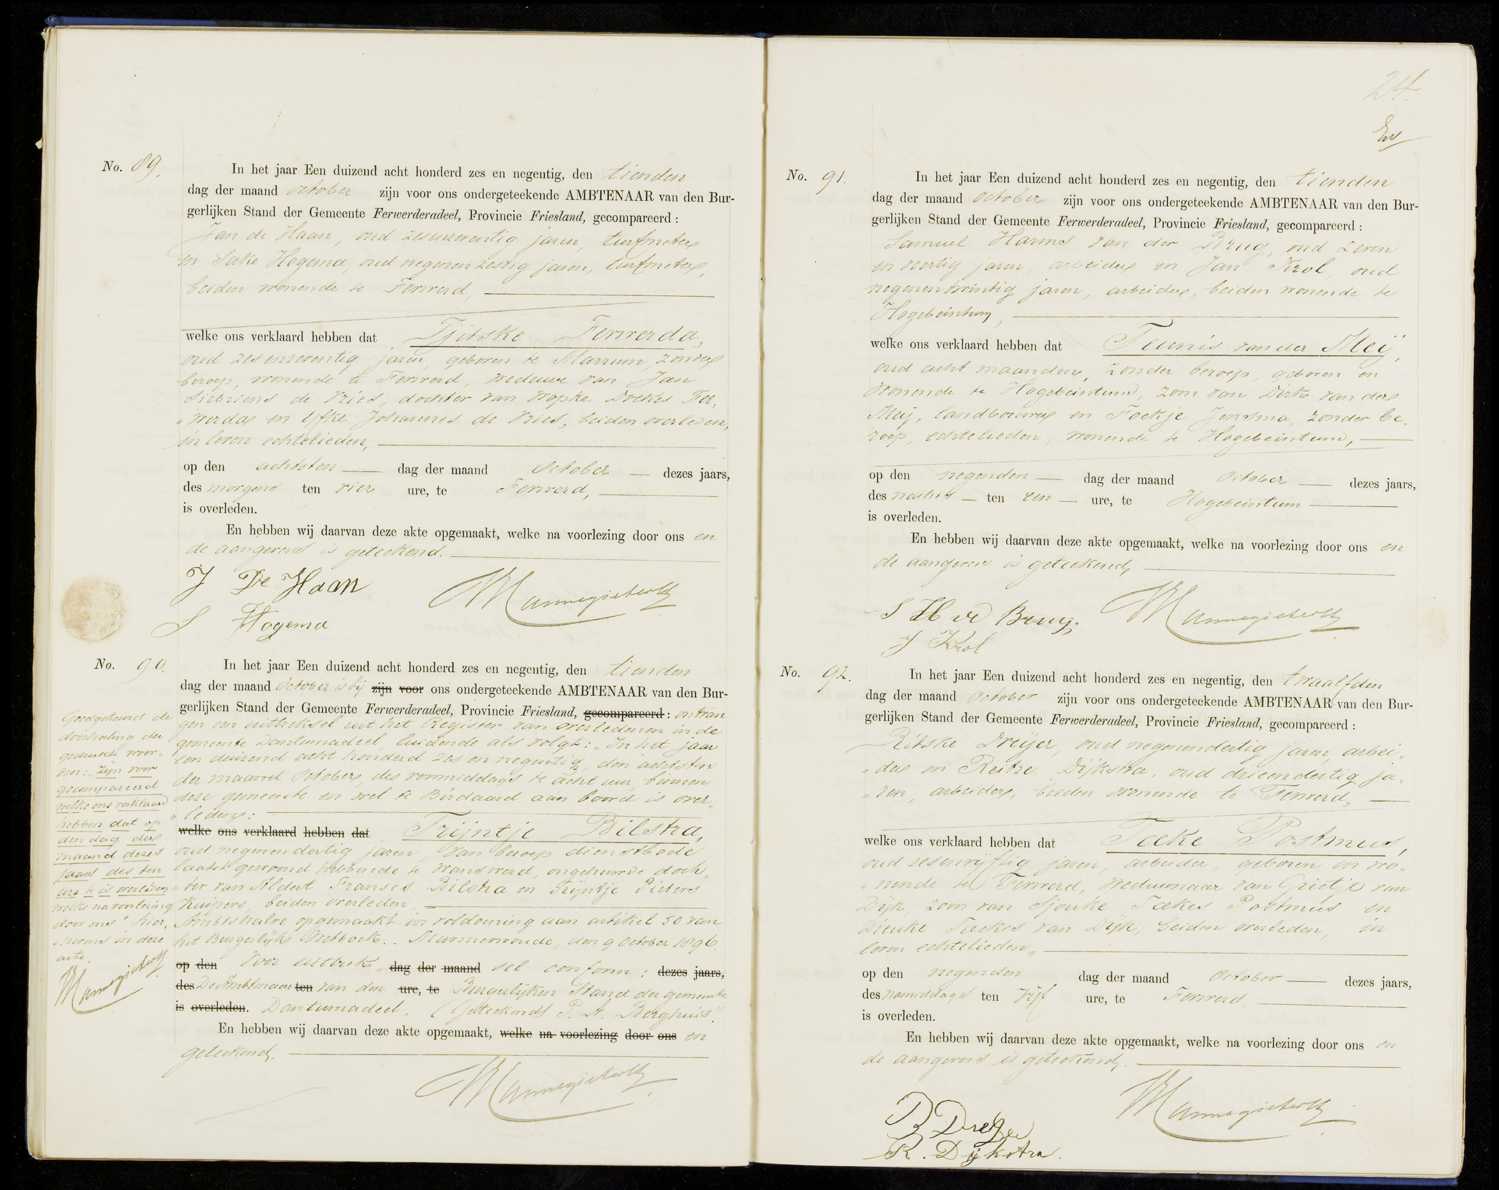 No. 89.
In het jaar Een duizend acht honderd zes en negentig, den tienden
dag der maand october zijn voor ons ondergeteekende AMBTENAAR van den Bur-
gerlijken Stand der Gemeente Ferwerderadeel, Provincie Friesland, gecompareerd :
Jan de Haan, oud zesenzeventig jaren, turfmeter
en Sake Hogema, oud negenenzestig jaren, turfmeter,
beiden wonende te Ferwerd,
welke ons verklaard hebben dat Tjitske Ferwerda,
oud zesenzeventig jaren, geboren te Marrum, zonder
beroep, wonende te Ferwerd, weduwe van Jan
de Vries, dochter van Wopke Foekes Fer-
werda en Ytke Johannes de Vries, beiden overleden,
in leven echtelieden,
op den achtsten dag der maand October dezes jaars,
des morgens ten vier ure, te Ferwerd,
is overleden.
En hebben wij daarvan deze akte opgemaakt, welke na voorlezing door ons en
de aangevers is geteekend.
J De Haan
S Hogema
Mannegieterlz
No. 90.
In het jaar Een duizend acht honderd zes en negentig, den tienden
dag der maand October is bij zijn voor ons ondergeteekende AMBTENAAR van den Bur-
gerlijken Stand der Gemeente Ferwerderadeel, Provincie Friesland, gecompareerd : ontvan
gen een uittreksel uit het Register van overledenen in de
gemeente Dantumadeel, luidende als volgt: "In het jaar
een duizend acht honderd zes en negentig, den achtsten
der maand October, des voormiddags te acht uur, binnen
deze gemeente en wel te Birdaard aan boord is over-
leden:
welke ons verklaard hebben dat Trijntje Bilstra,
oud negenendertig jaren, van beroep dienstbode
laatst gewoond hebbende te Wanswerd, ongehuwde doch-
ter van Aldert Fransen Bilstra en Trijntje Pieters
Kuipers, beiden overleden,
Ambtshalve opgemaakt in voldoening aan artikel 50 van
het Burgerlijk Wetboek. Murmerwoude, den 9 October 1896.
op den Voor uittreksel dag der maand conform : dezes jaars,
des De Ambtenaar ten van den ure, te Burgerlijken Stand der gemeente
is overleden. Dantumadeel. (Geteekend) P. A. Berghuis".
En hebben wij daarvan deze akte opgemaakt, welke na voorlezing door ons en
geteekend.
Mannegieterlz
Goedgekeurd de
doorhaling der
gedrukte woor-
den: zijn voor
gecompareerd
welke ons verklaard
hebben dat op
den dag der
maand dezes
jaars des ten
ure te is overleden
welke na voorlezing
door ons" hier-
neven in deze
acte.
Mannegieterlz
24.
No. 91.
In het jaar Een duizend acht honderd zes en negentig, den tienden
dag der maand October zijn voor ons ondergeteekende AMBTENAAR van den Bur-
gerlijken Stand der Gemeente Ferwerderadeel, Provincie Friesland, gecompareerd :
Samuel Harms van der Brug, oud zeven
en veertig jaren, arbeider en Jan Krol, oud
negenentwintig jaren, arbeider, beiden wonende te
Hogebeintum,
welke ons verklaard hebben dat Teunis van der Meij,
oud acht maanden, zonder beroep, geboren en
wonende te Hogebeintum, zoon van Dirk van der
Meij, landbouwer en Foekje Jensma, zonder be-
roep, echtelieden, wonende te Hogebeintum,
op den negenden dag der maand October dezes jaars,
des nachts ten een ure, te Hogebeintum
is overleden.
En hebben wij daarvan deze akte opgemaakt, welke na voorlezing door ons en
de aangevers is geteekend,
S H vd Brug.
J Krol
Mannegieterlz
No. 92.
In het jaar Een duizend acht honderd zes en negentig, den twaalfden
dag der maand October zijn voor ons ondergeteekende AMBTENAAR van den Bur-
gerlijken Stand der Gemeente Ferwerderadeel, Provincie Friesland, gecompareerd :
Ritske Dreijer, oud negenendertig jaren, arbei-
der en Reitze Dijkstra, oud drieendertig ja-
ren, arbeider, beiden wonende te Ferwerd,
welke ons verklaard hebben dat Taeke Postmus,
oud zesenvijftig jaren, arbeider, geboren en wo-
nende te Ferwerd, weduwnaar van Grietje van
Dijk, zoon van Sjouke Taekes Postmus en
Dieuke Taekes van Dijk, beiden overleden, in
leven echtelieden,
op den negenden dag der maand October dezes jaars,
des namiddags ten vijf ure, te Ferwerd
is overleden.
En hebben wij daarvan deze akte opgemaakt, welke na voorlezing door ons en
de aangevers is geteekend.
R Dreijer
R. Dijkstra.
Mannegieterlz